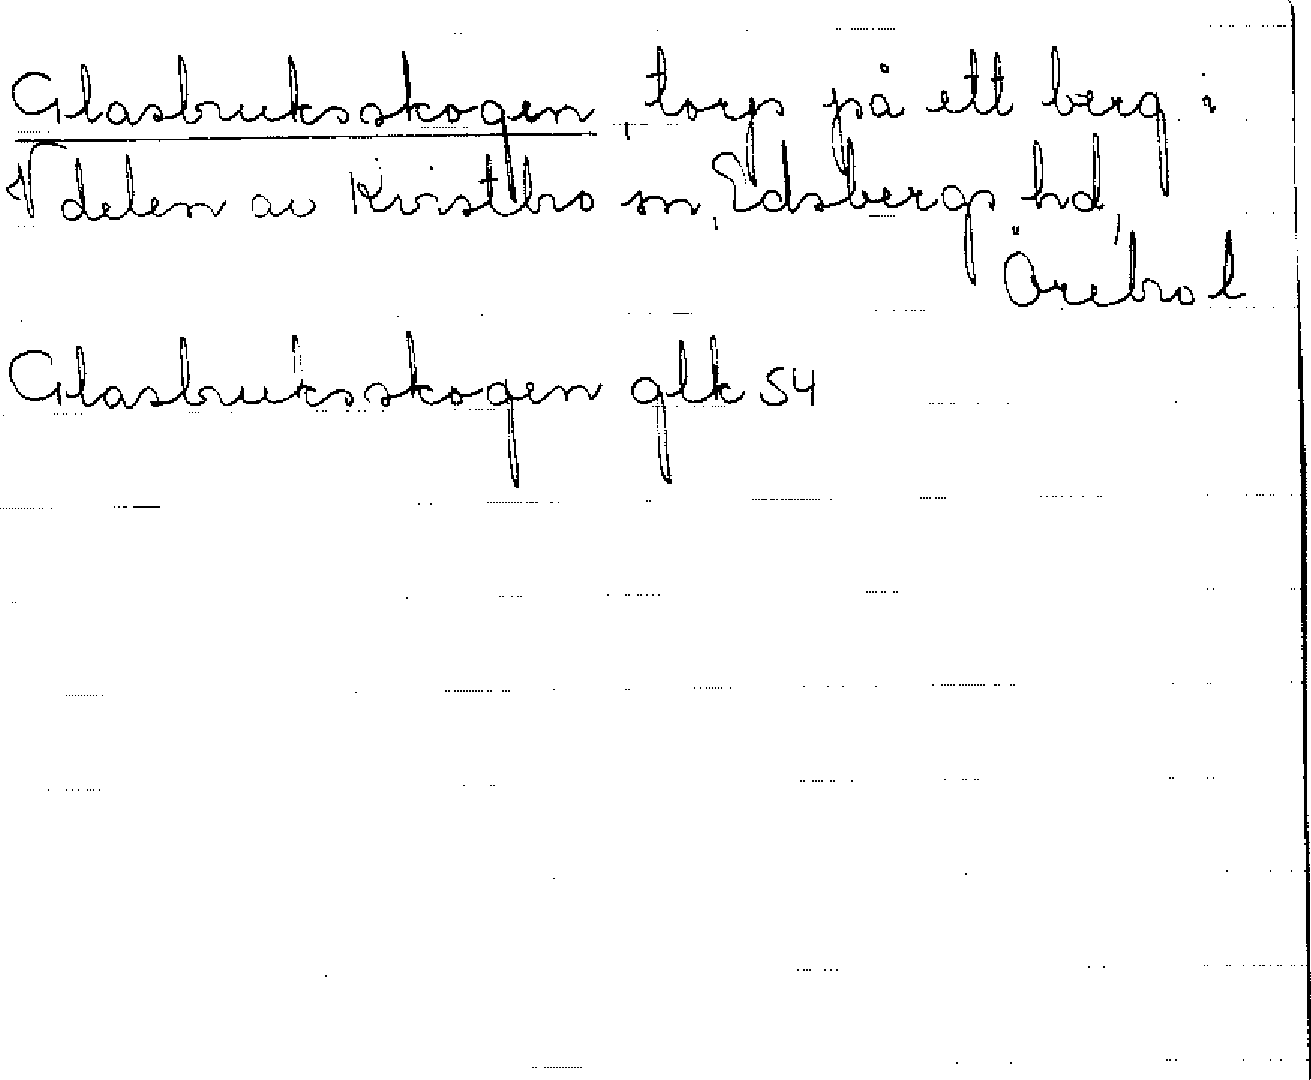 Glasbruksskogen, torp på ett berg i
V delen av Kvistbro sn, Edsbergs hd,
Örebro l
Glasbruksskogen glk 54